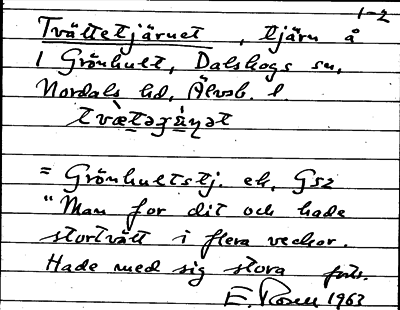 1-2
Tvättetjärnet, tjärn å
1 Grönhult, Dalskogs sn,
Nordals hd, Älvsb. l.
= Grönhultstj. ek, GS2
"Man for dit och hade
stortvätt i flera veckor.
Hade med sig stora
E. Rosén 1963